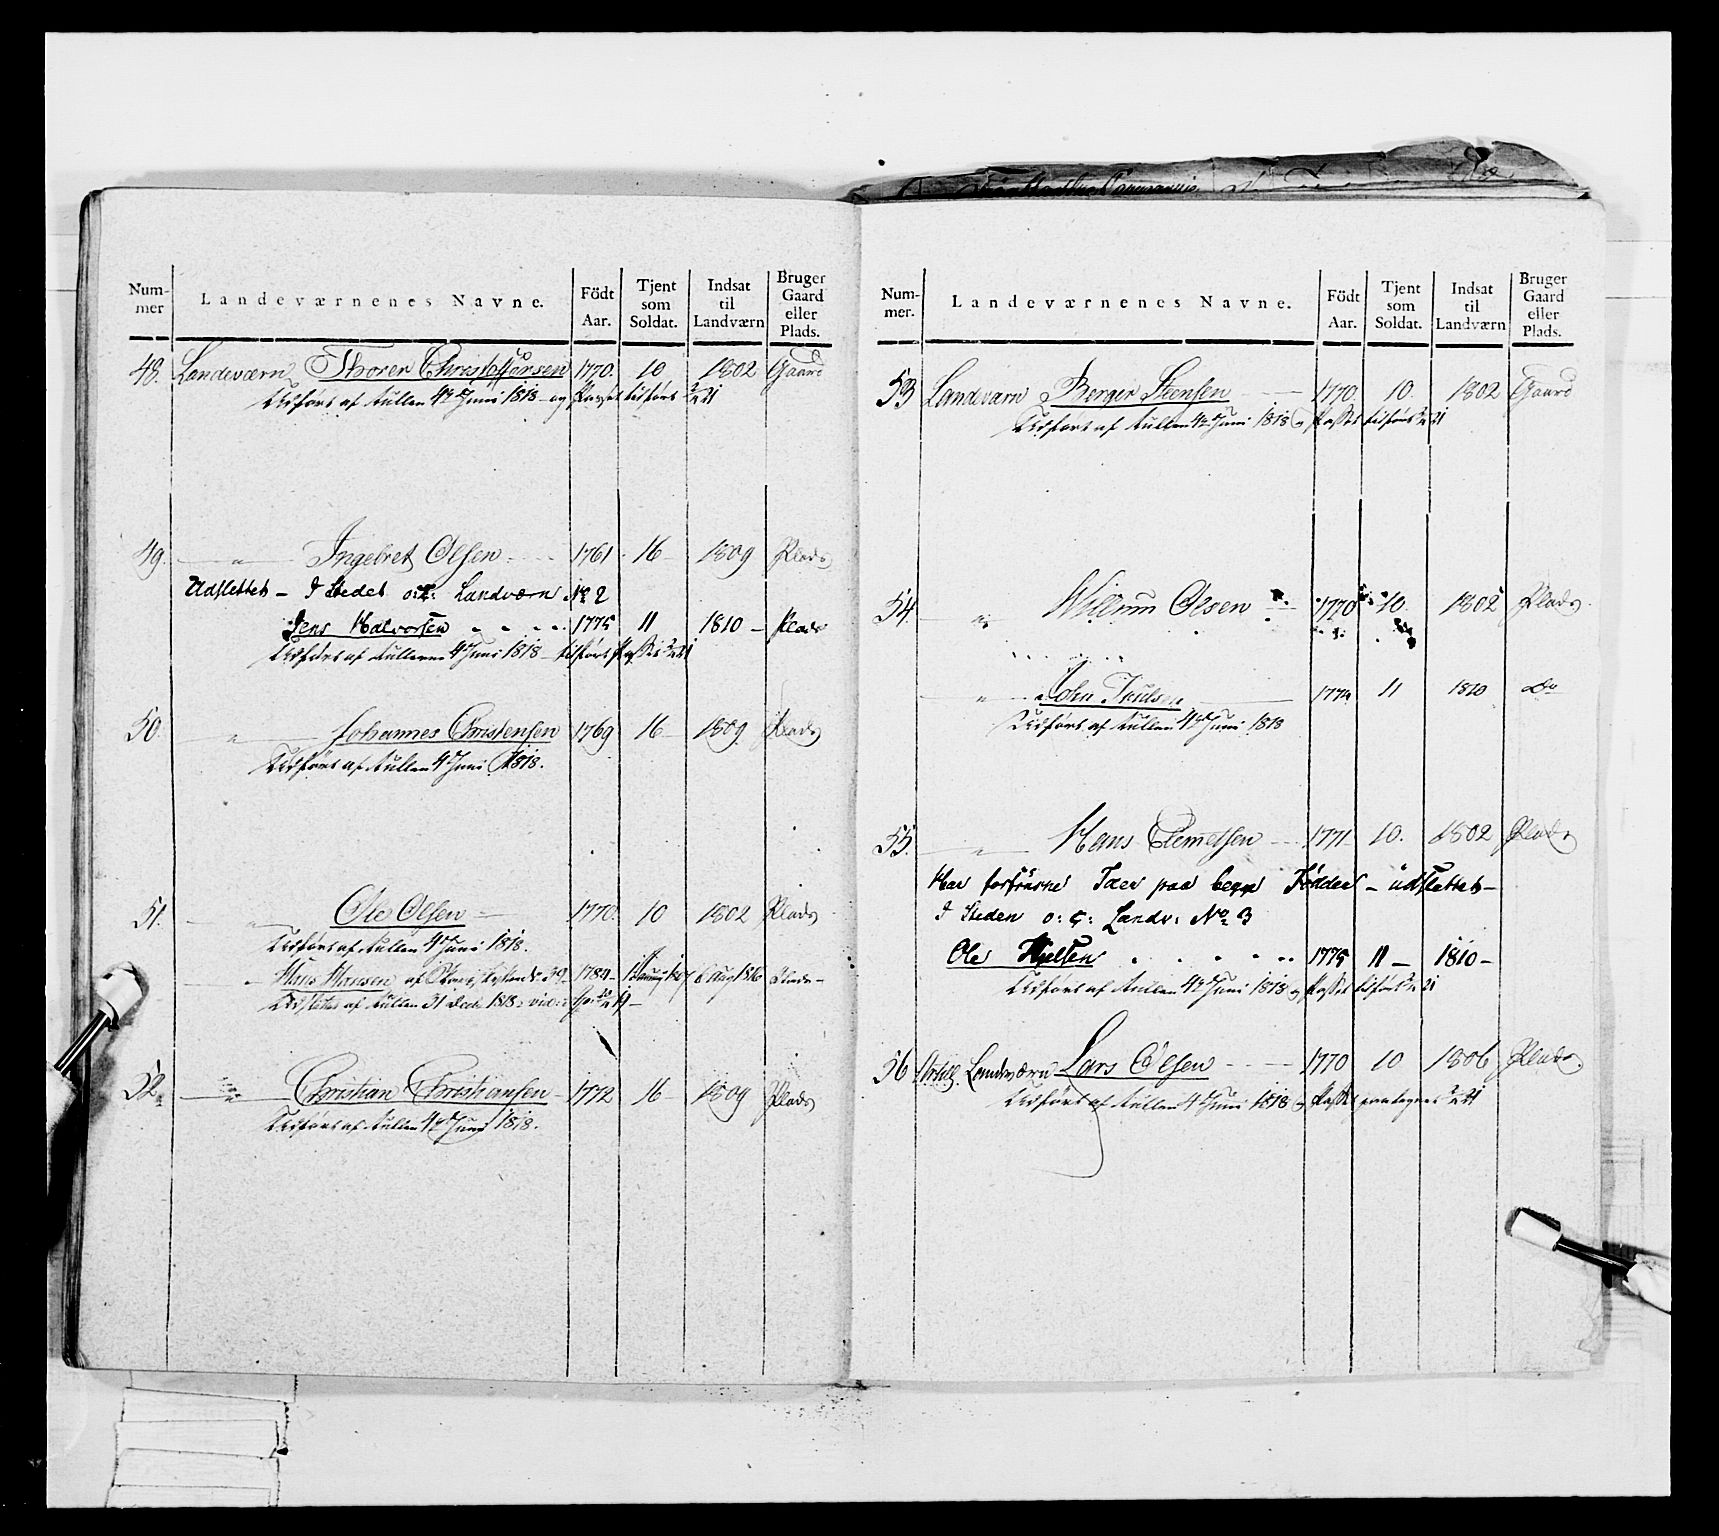 Num-
mer
Landeværnenes Navne.
Född
Aar.
Tjent
som
Soldat.
Indsat
til
Landværn
Bruger
Gaard
eller
Plads.
48. Landeværn Thorer Christophersen 1770. 10 1802 Gaard
Udført af Rullen 4de Juni 1818 og Passet tilført
49. — " — Ingebret Olsen 1761 16 1809 Plads
Udslettet – I Stedet o: Landværn No 2
Jens Halvorsen " " " 1775 11 1810 – Plads
Udført af Rullerne 4de Juni 1818 – tilført Passet
50. " — Johannes Christensen 1769 16 1809. Plads
Udført af Rullen 4de Juni 1818.
51. " Ole Olsen 1770. 10 1802 Plads
Udført af Rullen 4de Juni 1818.
" Hans Hansen af 39 1784 6 Aug 1816 Plads
Udslettet af Rullen 31 Decbr 1818
52. — " — Christian Christiansen 1772 16 1809 Plads
Udført af Rullen 4de Juni 1818.
Num-
mer.
Landeværnenes Navne.
Född
Aar.
Tjent
som
Soldat.
Indsat
til
Landværn
Bruger
Gaard
eller
Plads.
53 Landværn Berger Steensen 1770. 10. 1802 Gaard
Udført af Rullen 4de Juni 1818 og Passet tilført
54. — " Willum Olsen 1770 10. 1802 Plads
" — John Paulsen 11 1810 Do
Udført af Rullen 4de Juni 1818
55. — " — Hans Clemetsen 1771 10. 1802 Plads
Har forfrosne Tæer paa begge Födder – udslettet –
I Steden o: Landv: No 3
Ole 1775 11 – 1810 –
Udført af Rullen 4de Juni 1818 og Passet tilført
56 Artill. Landværn Lars Olsen 1770 10 1806 Plads.
Udført af Rullen 4de Juni 1818 og Passet